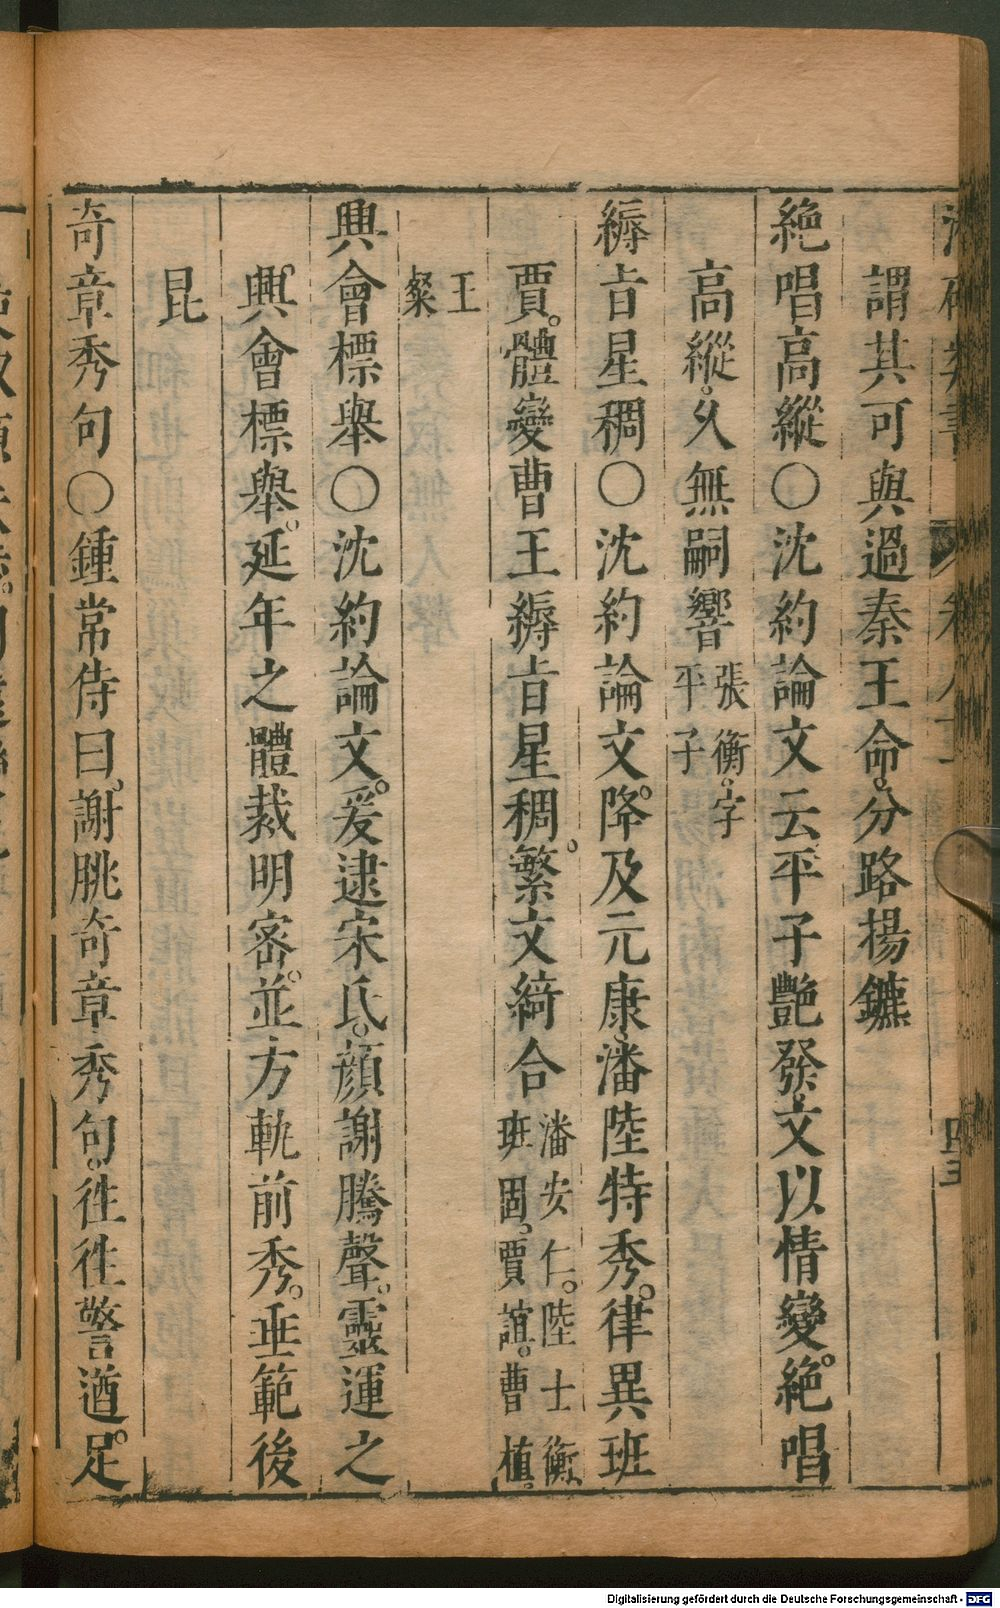 謂其可與過秦王命。分路楊鑣
絶唱高縱○沈約論文云平子艷發。文以情變。絶唱
高縱。久無嗣響張衡。字平子
縟旨星稠○沈約論文。降及元康。潘陸特秀。律異班
賈。體變曹王縟旨星稠。繁文綺合潘安仁。陸士衡班固。賈誼。曹植。
王粲
興會標舉○沈約論文。爰逮宋氏。顔謝騰聲。靈運之
興會標舉。延年之體裁明密。並方軌前秀。垂範後
昆
奇章秀句○鍾常侍曰。謝朓奇章秀句。徃徃警遒。足
Digitalisierung gefördert durch die Deutsche Forschungsgemeinschaft - DFG